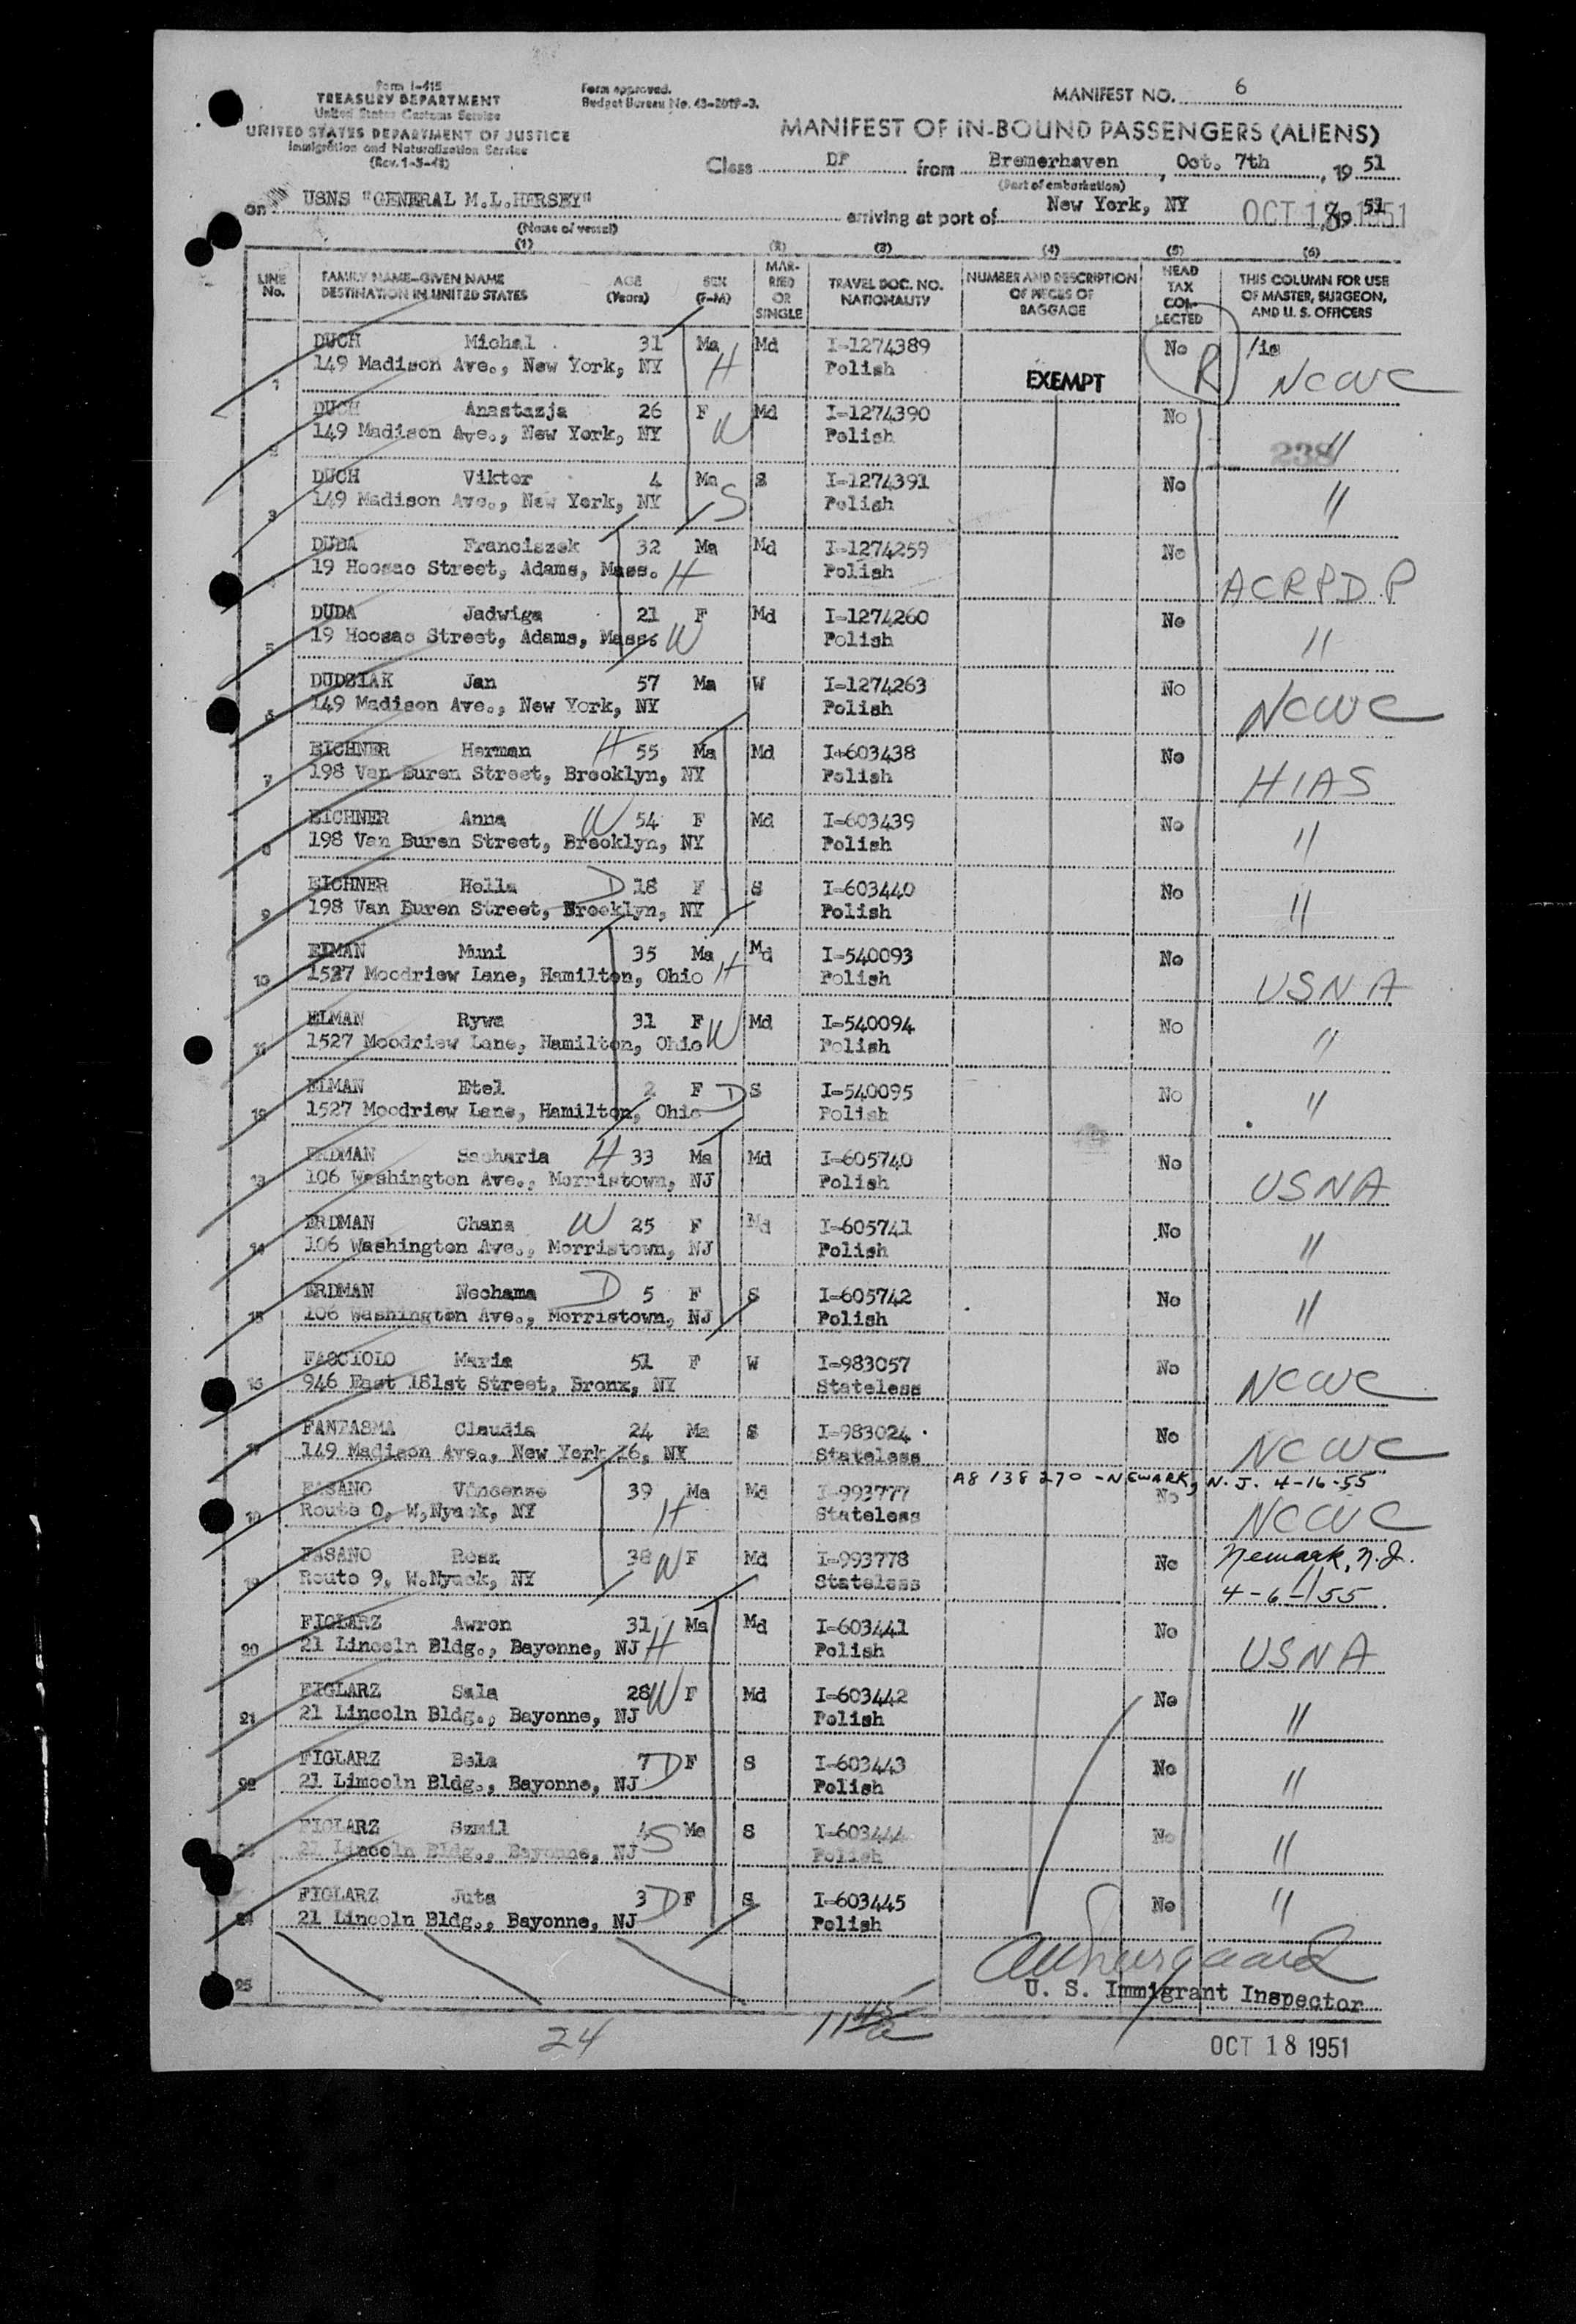 Form I-415
TREASURY DEPARTMENT
United States Customs Service
UNITED STATES DEPARTMENT OF JUSTICE
Immigration and Naturalization Service
(Rev. 1-3-48)
Form approved.
Budget Bureau No. 43-2019-3.
MANIFEST NO. 6
MANIFEST OF IN-BOUND PASSENGERS (ALIENS)
Class DP from Bremerhaven, Oct. 7th, 19 51
(Port of embarkation)
on USNS "GENERAL M.L.HERSEY" arriving at port of New York, NY OCT 18 1951 19 51
(Name of vessel)
(1) (2) (3) (4) (5) (6)
LINE No.
FAMILY NAME-GIVEN NAME
DESTINATION IN UNITED STATES
AGE (Years)
SEX (F-M)
MARRIED OR SINGLE
TRAVEL DOC. NO. NATIONALITY
NUMBER AND DESCRIPTION OF PIECES OF BAGGAGE
HEAD TAX COLLECTED
THIS COLUMN FOR USE OF MASTER, SURGEON, AND U. S. OFFICERS
DUCH Michal 31 Ma Md I-1274389 No
1 149 Madison Ave., New York, NY H Polish EXEMPT R NCWC
DUCH Anastazja 26 F Md I-1274390 No
2 149 Madison Ave., New York, NY W Polish 238 "
DUCH Viktor 4 Ma S I-1274391 No
3 149 Madison Ave., New York, NY S Polish "
DUDA Franciszek 32 Ma Md I-1274259 No
4 19 Hoosac Street, Adams, Mass. H Polish ACRPDP
DUDA Jadwiga 21 F Md I-1274260 No
5 19 Hoosac Street, Adams, Mass. W Polish "
DUDZIAK Jan 57 Ma W I-1274263 No
6 149 Madison Ave., New York, NY Polish NCWC
EICHNER Herman H 55 Ma Md I-603438 No
7 198 Van Buren Street, Brooklyn, NY Polish HIAS
EICHNER Anna W 54 F Md I-603439 No
8 198 Van Buren Street, Brooklyn, NY Polish "
EICHNER Hella D 18 F S I-603440 No
9 198 Van Buren Street, Brooklyn, NY Polish "
ELMAN Muni 35 Ma Md I-540093 No
10 1527 Moodriew Lane, Hamilton, Ohio H Polish USNA
ELMAN Rywa 31 F Md I-540094 No
11 1527 Moodriew Lane, Hamilton, Ohio W Polish "
ELMAN Etel 2 F D S I-540095 No
12 1527 Moodriew Lane, Hamilton, Ohio Polish "
ERDMAN Sacharia H 33 Ma Md I-605740 No
13 106 Washington Ave., Morristown, NJ Polish USNA
ERDMAN Chana W 25 F Md I-605741 No
14 106 Washington Ave., Morristown, NJ Polish "
ERDMAN Nechama D 5 F S I-605742 No
15 106 Washington Ave., Morristown, NJ Polish "
FASCIOLO Maria 51 F W I-983057 No
16 946 East 181st Street, Bronx, NY Stateless NCWC
FANTASMA Claudia 24 Ma S I-983024 No
17 149 Madison Ave., New York 16, NY Stateless NCWC
A8 138 270 - NEWARK, N.J. 4-16-55
FASANO Vincenzo 39 Ma Md I-993777 No
18 Route 0, W,Nyack, NY H Stateless NCWC
FASANO Rosa 38 W F Md I-993778 No Newark, N.J.
19 Route 9, W.Nyack, NY Stateless " 4-6-55
FIGLARZ Awron 31 Ma Md I-603441 No
20 21 Lincoln Bldg., Bayonne, NJ H Polish USNA
FIGLARZ Sala 28 W F Md I-603442 No
21 21 Lincoln Bldg., Bayonne, NJ Polish "
FIGLARZ Bela 7 D F S I-603443 No
22 21 Limcoln Bldg., Bayonne, NJ Polish "
FIGLARZ Szmil 4 S Ma S I-603444 No
23 21 Lincoln Bldg., Bayonne, NJ Polish "
FIGLARZ Juta 3 D F S I-603445 No
24 21 Lincoln Bldg., Bayonne, NJ Polish "
25
U. S. Immigrant Inspector
24
OCT 18 1951